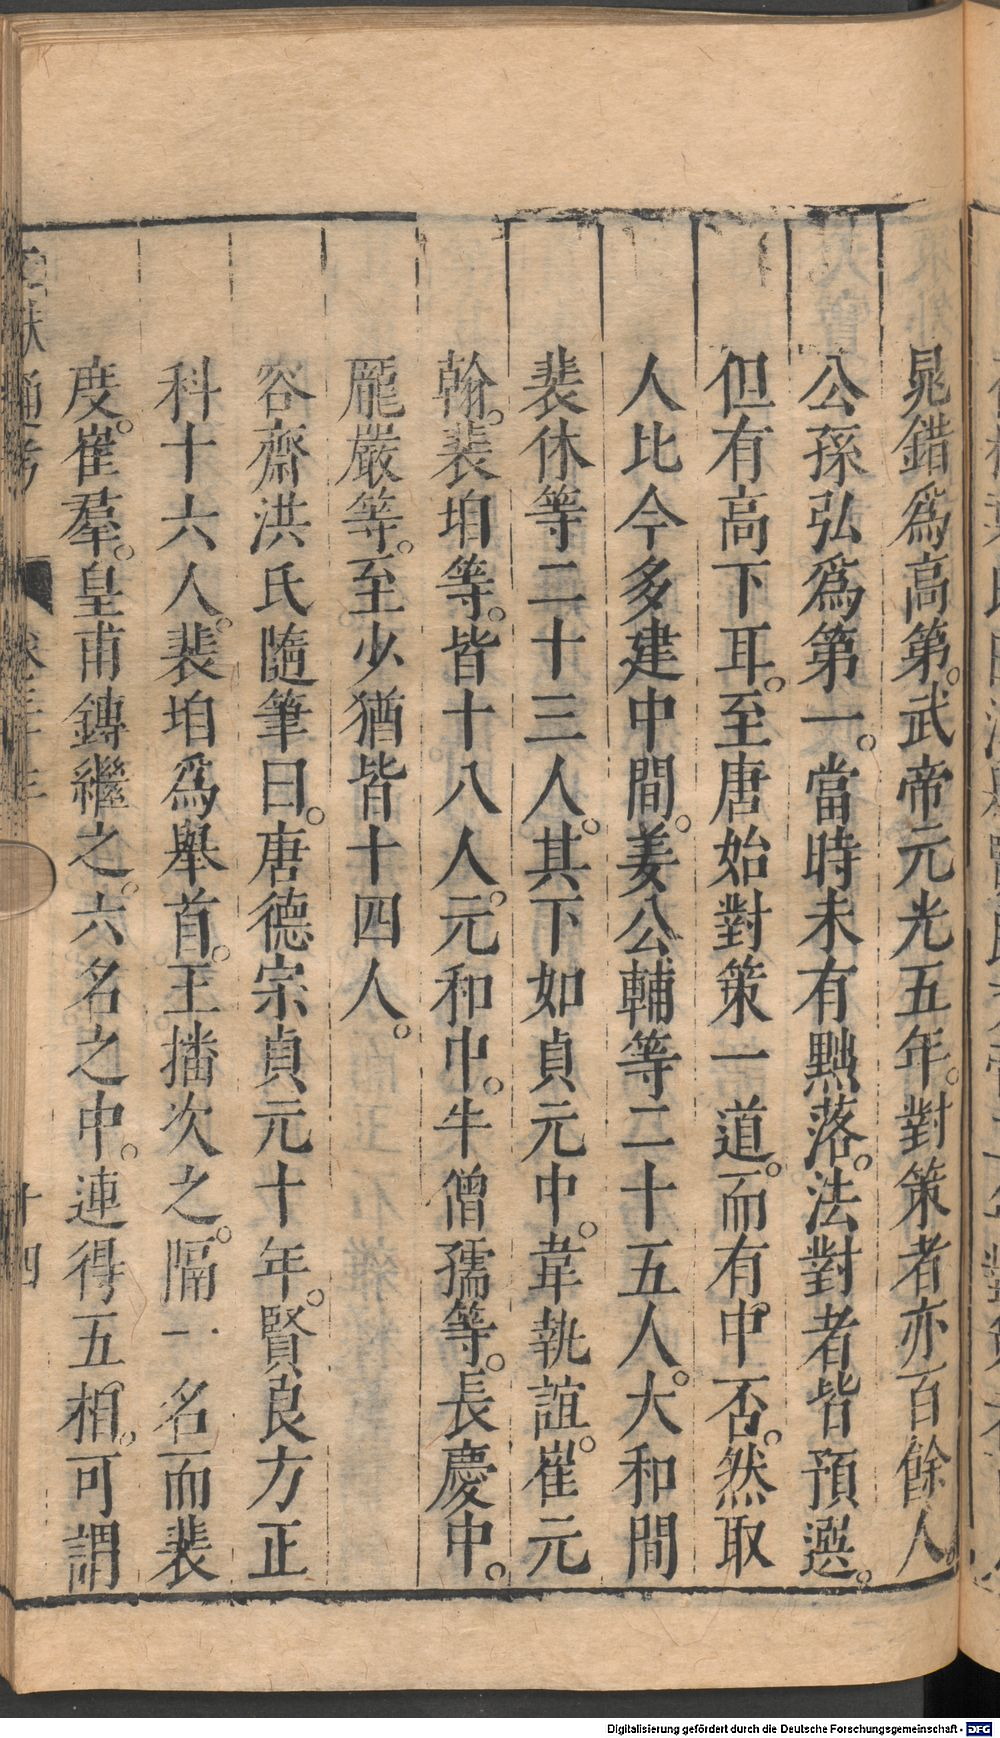 晁錯爲高第。武帝元光五年。對策者亦百餘人
公孫弘爲第一。當時未有黜落。法對者皆預選。
但有高下耳。至唐始對策一道。而有中否。然取
人比今多建中間。姜公輔等二十五人。大和間
裴休等二十三人。其下如貞元中。韋執誼。崔元
翰。裴垍等。皆十八人。元和中。牛僧孺等。長慶中。
龐嚴等。至少猶皆十四人。
容齋洪氏隨筆曰。唐德宗貞元十年。賢良方正
科十六人。裴垍爲舉首。王播次之。隔一名而裴
度。崔羣。皇甫鎛繼之。六名之中。連得五相。可謂
文獻通考
十四
Digitalisierung gefördert durch die Deutsche Forschungsgemeinschaft - DFG